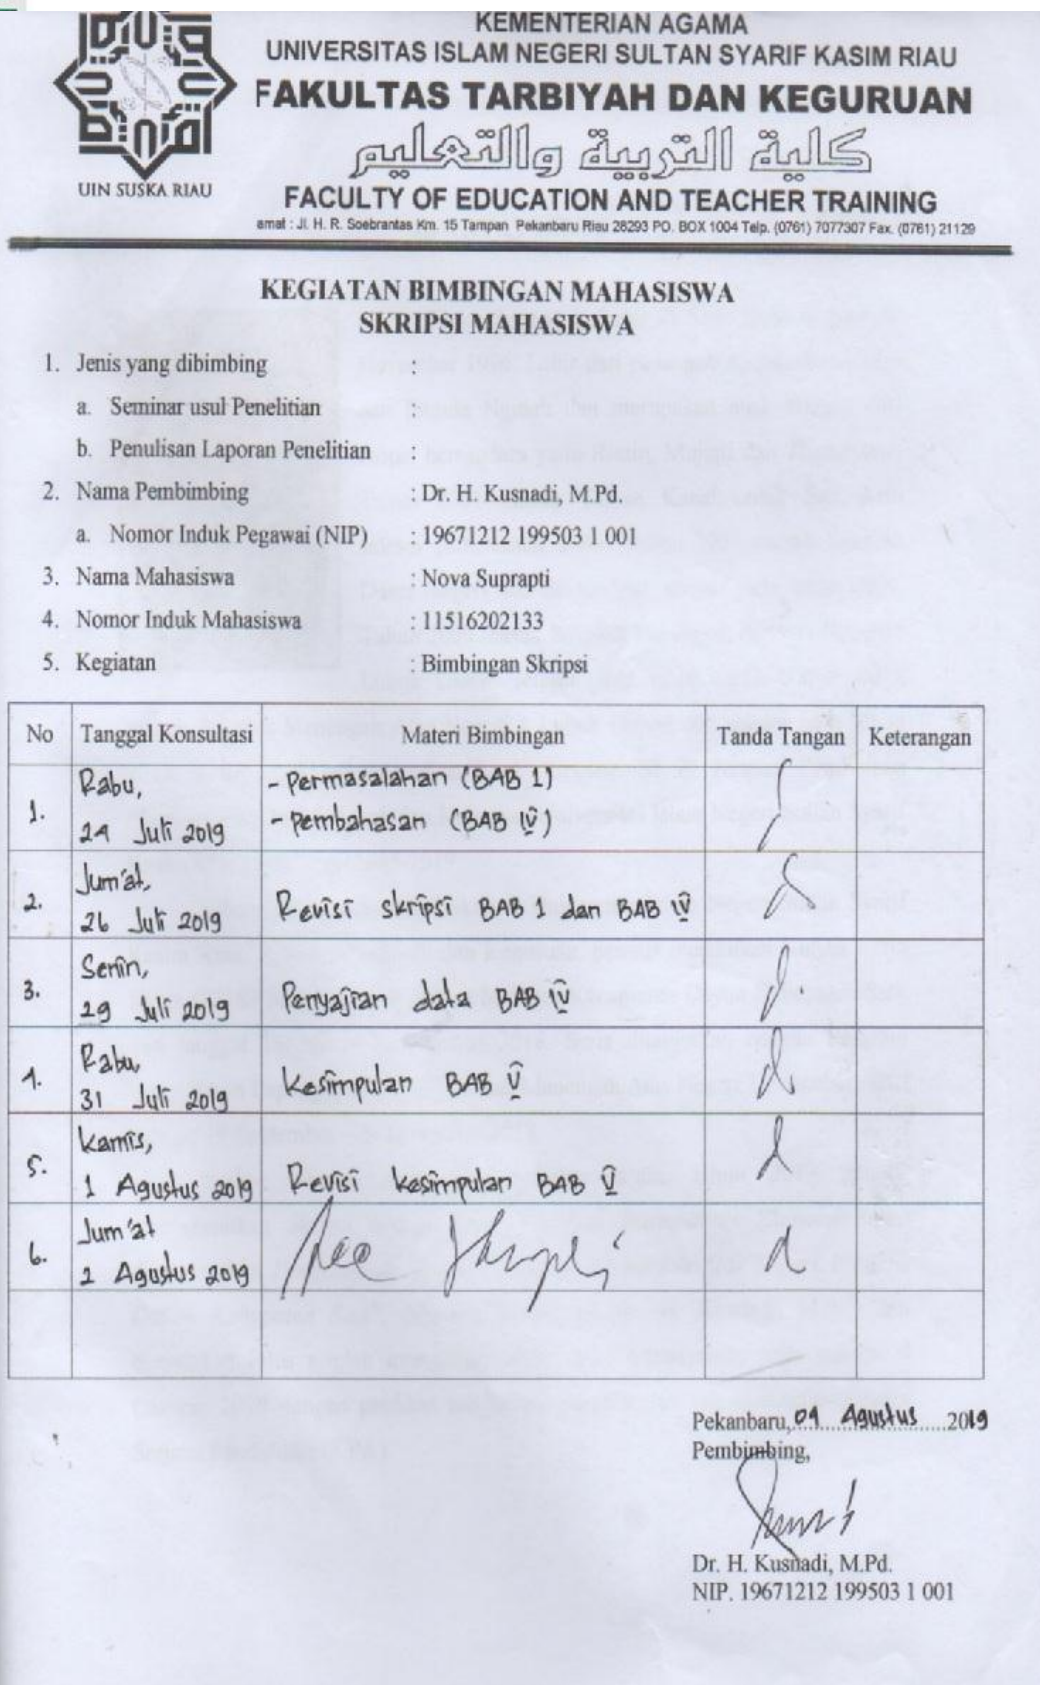 KEMENTERIAN AGAMA
UNIVERSITAS ISLAM NEGERI SULTAN SYARIF KASIM RIAU
FAKULTAS TARBIYAH DAN KEGURUAN
كلية التربية والتعليم
UIN SUSKA RIAU
FACULTY OF EDUCATION AND TEACHER TRAINING
amat : Jl. H. R. Soebrantas Km. 15 Tampan Pekanbaru Riau 28293 PO. BOX 1004 Telp. (0761) 7077307 Fax. (0761) 21129
KEGIATAN BIMBINGAN MAHASISWA
SKRIPSI MAHASISWA
1. Jenis yang dibimbing :
a. Seminar usul Penelitian :
b. Penulisan Laporan Penelitian :
2. Nama Pembimbing : Dr. H. Kusnadi, M.Pd.
a. Nomor Induk Pegawai (NIP) : 19671212 199503 1 001
3. Nama Mahasiswa : Nova Suprapti
4. Nomor Induk Mahasiswa : 11516202133
5. Kegiatan : Bimbingan Skripsi
No Tanggal Konsultasi Materi Bimbingan Tanda Tangan Keterangan
1. Rabu, - Permasalahan (BAB I)
24 Juli 2019 - Pembahasan (BAB IV)
2. Jum'at,
26 Juli 2019 Revisi skripsi BAB I dan BAB IV
3. Senin,
29 Juli 2019 Penyajian data BAB IV
4. Rabu,
31 Juli 2019 Kesimpulan BAB V
5. Kamis,
1 Agustus 2019 Revisi kesimpulan BAB V
6. Jum'at
2 Agustus 2019 Acc Skripsi
Pekanbaru, Agustus 2019
Pembimbing,
Dr. H. Kusnadi, M.Pd.
NIP. 19671212 199503 1 001